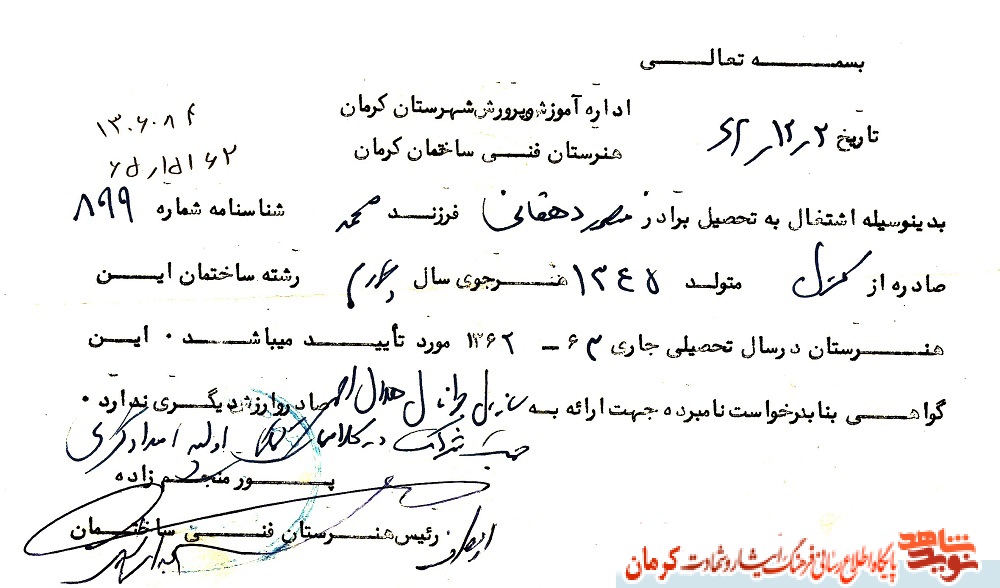 بسمه تعالی
اداره آموزش وپرورش شهرستان کرمان
هنرستان فنی ساختمان کرمان
تاریخ ۶۲/۱۲/۲
بدینوسیله اشتغال به تحصیل برادر منصور دهقانی فرزند محمد شناسنامه شماره ۸۹۹
صادره از متولد ۱۳۴۵ هنرجوی سال چهارم رشته ساختمان این
هنرستان درسال تحصیلی جاری ۶۳ – ۱۳۶۲ مورد تأیید میباشد ۰ این
گواهی بنابدرخواست نامبرده جهت ارائه به سازمان جوانان هلال احمر صادر وارزش دیگری ندارد ۰
جهت شرکت در کلاسهای اولیه امدادگری
پورمنجم زاده
رئیس هنرستان فنی ساختمان
نوید شاهد
پایگاه اطلاع رسانی فرهنگ ایثار و شهادت کرمان